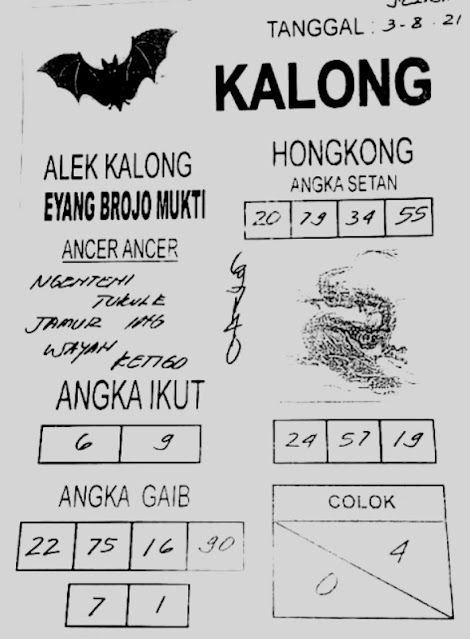 TANGGAL : 3-8-21
KALONG
ALEK KALONG
EYANG BROJO MUKTI
HONGKONG
ANGKA SETAN
20 79 34 55
ANCER ANCER
NGENTENI
TUKULE
JAMUR ING
WAYAH
KETIGO
6
9
7
1
4
0
ANGKA IKUT
6 9
24 57 19
ANGKA GAIB
22 75 16 90
7 1
COLOK
4
0